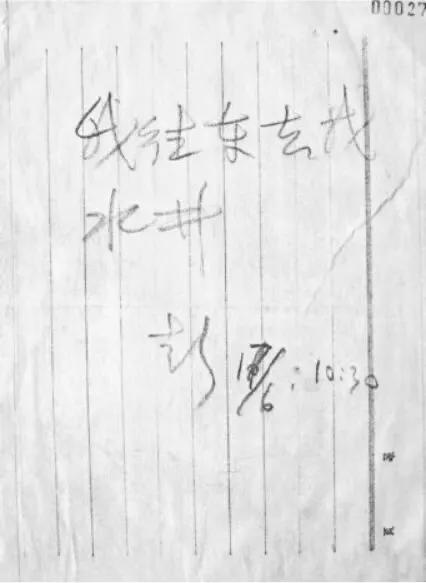 00027
我往东去找
水井
彭 17/6:10:30